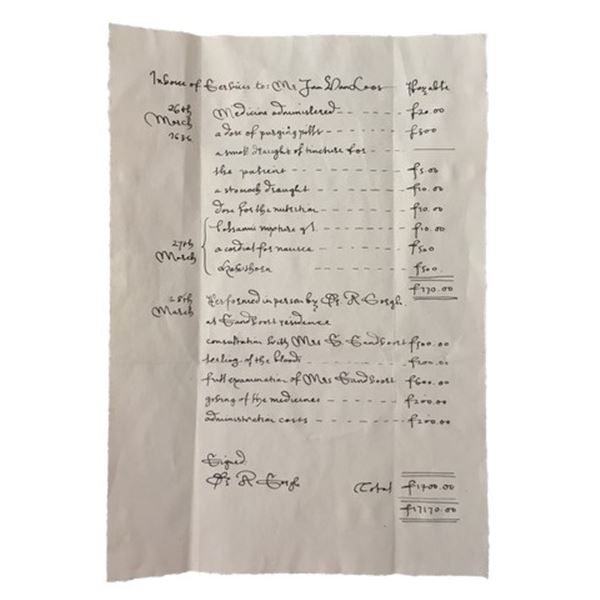 Invoice of Services to: Mr Jan Van Loos Payable
26th March Medicine administered f20.00
a dose of purging pills f500
a small draught of tincture for
the patient f5.00
a stomach draught f10.00
dose for the nutrition f10.00
27th March mixture f10.00
a cordial for nausea f500
f500
f770.00
28th March Performed in person by Dr. R Gorgh
at Sandvoort residence
consultation with Mrs S. Sandvoort f500.00
of the blood f200.00
full examination of Mrs Sandvoort f600.00
giving of the medicines f200.00
administration costs f200.00
Signed
Dr R Gorgh Total f1700.00
f17170.00